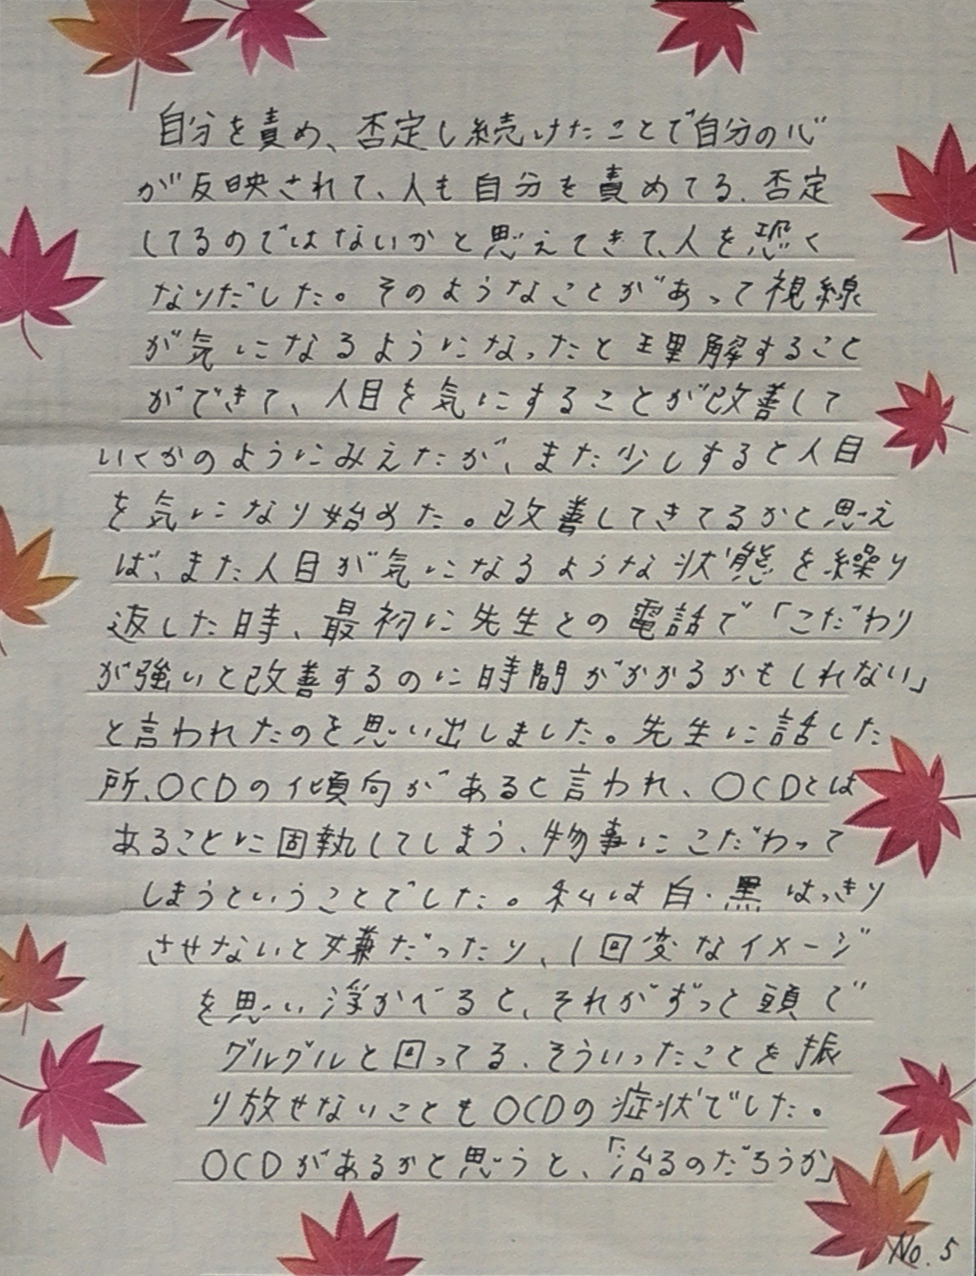 自分を責め、否定し続けたことで自分の心
が反映されて、人も自分を責めてる、否定
してるのではないかと思えてきて、人を恐く
なりだした。そのようなことがあって視線
が気になるようになったと理解すること
ができて、人目を気にすることが改善して
いくかのようにみえたが、また少しすると人目
を気になり始めた。改善してきてるかと思え
ば、また人目が気になるような状態を繰り
返した時、最初に先生との電話で「こだわり
が強いと改善するのに時間がかかるかもしれない」
と言われたのを思い出しました。先生に話した
所、OCDの傾向があると言われ、OCDとは
あることに固執してしまう、物事にこだわって
しまうということでした。私は白・黒はっきり
させないと嫌だったり、1回変なイメージ
を思い浮かべると、それがずっと頭で
グルグルと回ってる、そういったことを振
り放せないこともOCDの症状でした。
OCDがあるかと思うと、「治るのだろうか」
No.5